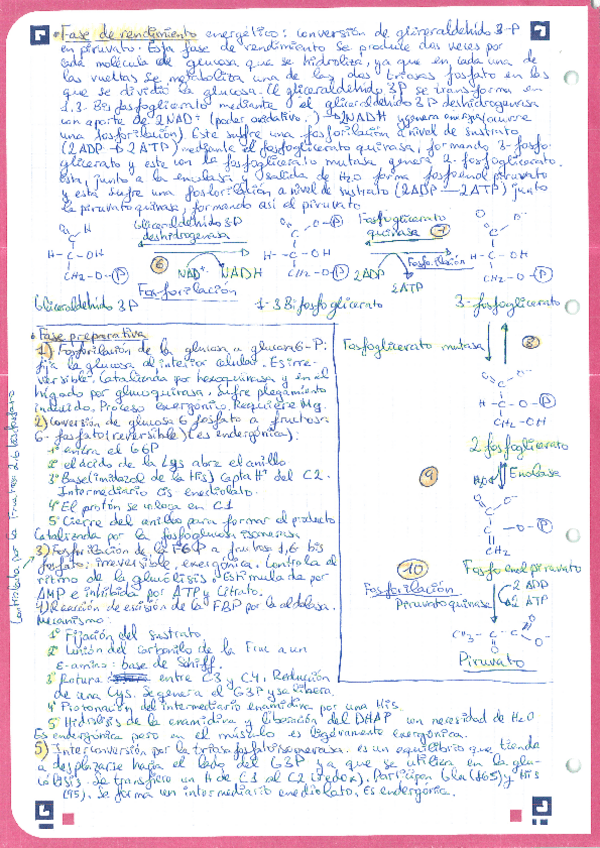 • Fase de rendimiento energético: conversión de gliceraldehído 3-P
en piruvato. Esta fase de rendimiento se produce dos veces por
cada molécula de glucosa que se hidroliza, ya que en cada una de
las vueltas se metaboliza una de las dos triosas fosfato en las
que se divide la glucosa. El gliceraldehído 3P se transforma en
1,3-Bisfosfoglicerato mediante el gliceraldehído 3P deshidrogenasa
con aporte de 2NAD+ (poder oxidativo) → 2NADH y genera energía (ocurre
una fosforilación). Este sufre una fosforilación a nivel de sustrato
(2ADP → 2ATP) mediante el fosfoglicerato quinasa, formando 3-fosfo-
glicerato y este con la fosfoglicerato mutasa genera 2-fosfoglicerato.
Esta, junto a la enolasa y salida de H2O forma fosfoenolpiruvato
y esta sufre una fosforilación a nivel de sustrato (2ADP — 2ATP) junto
la piruvato quinasa, formando así el piruvato
Gliceraldehído 3P
deshidrogenasa
6
NAD+ NADH
Fosforilación
Fosfoglicerato
quinasa 7
Fosforilación
2ADP
2ATP
H-C-OH
CH2-O-P
H-C-OH
CH2-O-P
C-OH
CH2-O-P
Gliceraldehído 3P
1-3 Bifosfoglicerato
3-fosfoglicerato
• Fase preparativa
1) Fosforilación de la glucosa a glucosa 6-P:
fija la glucosa al interior celular. Es irre-
versible. Catalizada por hexoquinasa y en el
hígado por glucoquinasa. Sufre plegamiento
inducido. Proceso exergónico. Requiere Mg.
2) Conversión de glucosa 6 fosfato a fructosa
6-fosfato (reversible) (es endergónica):
1º entra el G6P
2º el ácido de la Lys abre el anillo
3º Base (imidazol de la His) capta H+ del C2.
Intermediario cis-enediolato.
4º El protón se coloca en C1
5º Cierre del anillo para formar el producto
Catalizada por la fosfoglucosa isomerasa
3) Fosforilación de la F6P a fructosa 1,6 bis
fosfato: irreversible, exergónica. Controla el
ritmo de la glucólisis. Estimulada por
AMP e inhibida por ATP y citrato.
4) Reacción de escisión de la FBP por la aldolasa.
Mecanismo:
1º Fijación del sustrato
2º Unión del carbonilo de la Fruc a un
ε-amino: base de Schiff.
3º Rotura entre C3 y C4. Reducción
de una Cys. Se genera el G3P y se libera.
4º Protonación del intermediario enamidiva por una His
5º Hidrólisis de la enamidiva y liberación del DHAP con necesidad de H2O
Es endergónica pero en el músculo es ligeramente exergónica.
5) Interconversión por la triosa fosfato isomerasa. es un equilibrio que tiende
a desplazarse hacia el lado del G3P ya que se utiliza en la glu-
cólisis. Se transfiere un H de C1 al C2 (redox). Participan Glu (165) y His
(95). Se forma un intermediario enediolato. Es endergónica.
Controlada por la Fructosa 2,6 bisfosfato
Fosfoglicerato mutasa
8
H-C-O-P
CH2-OH
2 fosfoglicerato
9
H2O
Enolasa
C-O-P
CH2
Fosfoenolpiruvato
10
Fosforilación
Piruvatoquinasa
2 ADP
2 ATP
CH3-C-C
Piruvato